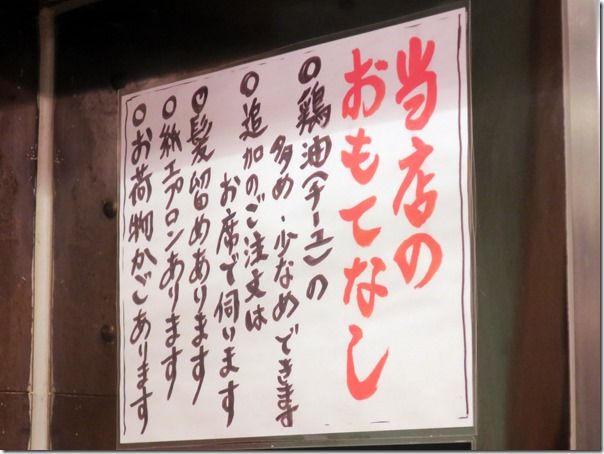 当店の
おもてなし
○鶏油(チーユ)の
多め・少なめできます
○追加のご注文は
お席で伺います
○髪留めあります
○紙エプロンあります
○お荷物かごあります